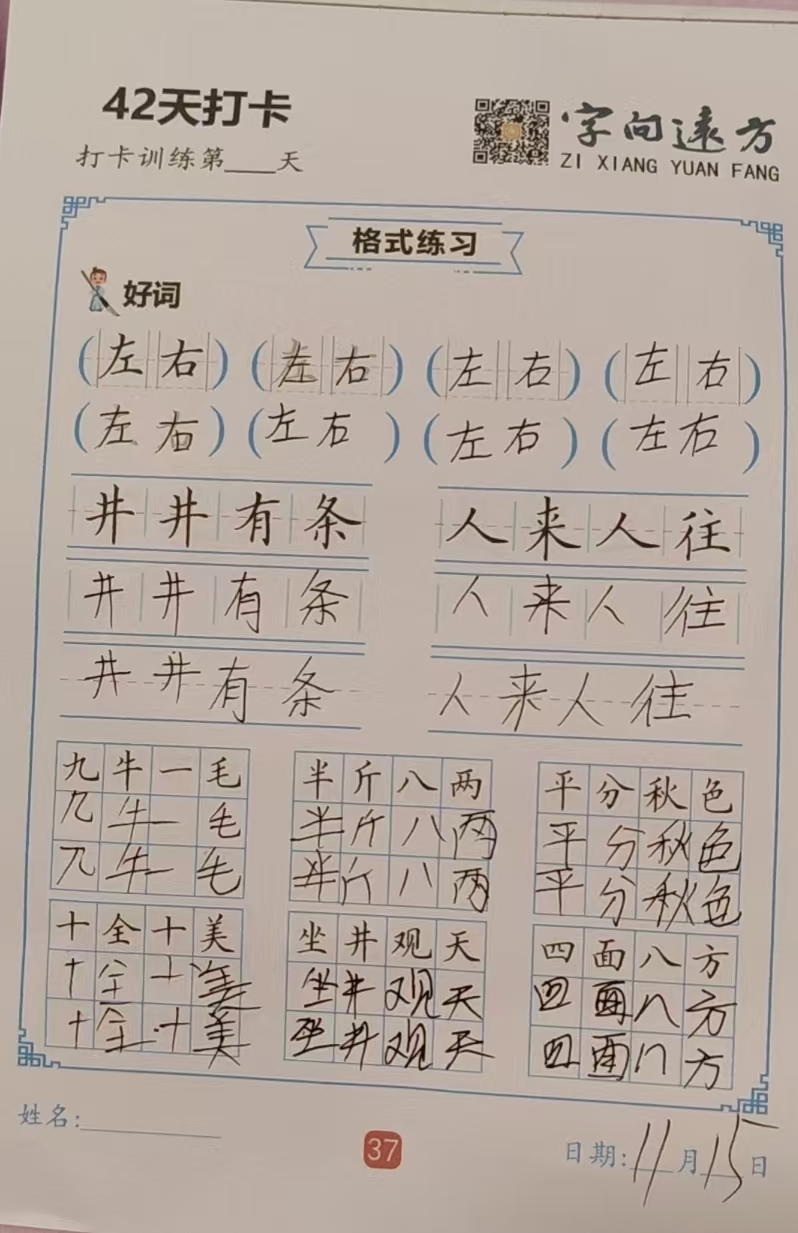 42天打卡
字向遠方
打卡训练第___天
ZI XIANG YUAN FANG
格式练习
好词
(左右) (左右) (左右) (左右)
(左右) (左右) (左右) (左右)
井井有条 人来人往
井井有条 人来人往
井井有条 人来人往
九牛一毛 半斤八两 平分秋色
九牛一毛 半斤八两 平分秋色
九牛一毛 半斤八两 平分秋色
十全十美 坐井观天 四面八方
十全十美 坐井观天 四面八方
十全十美 坐井观天 四面八方
姓名:
37
日期:11月15日